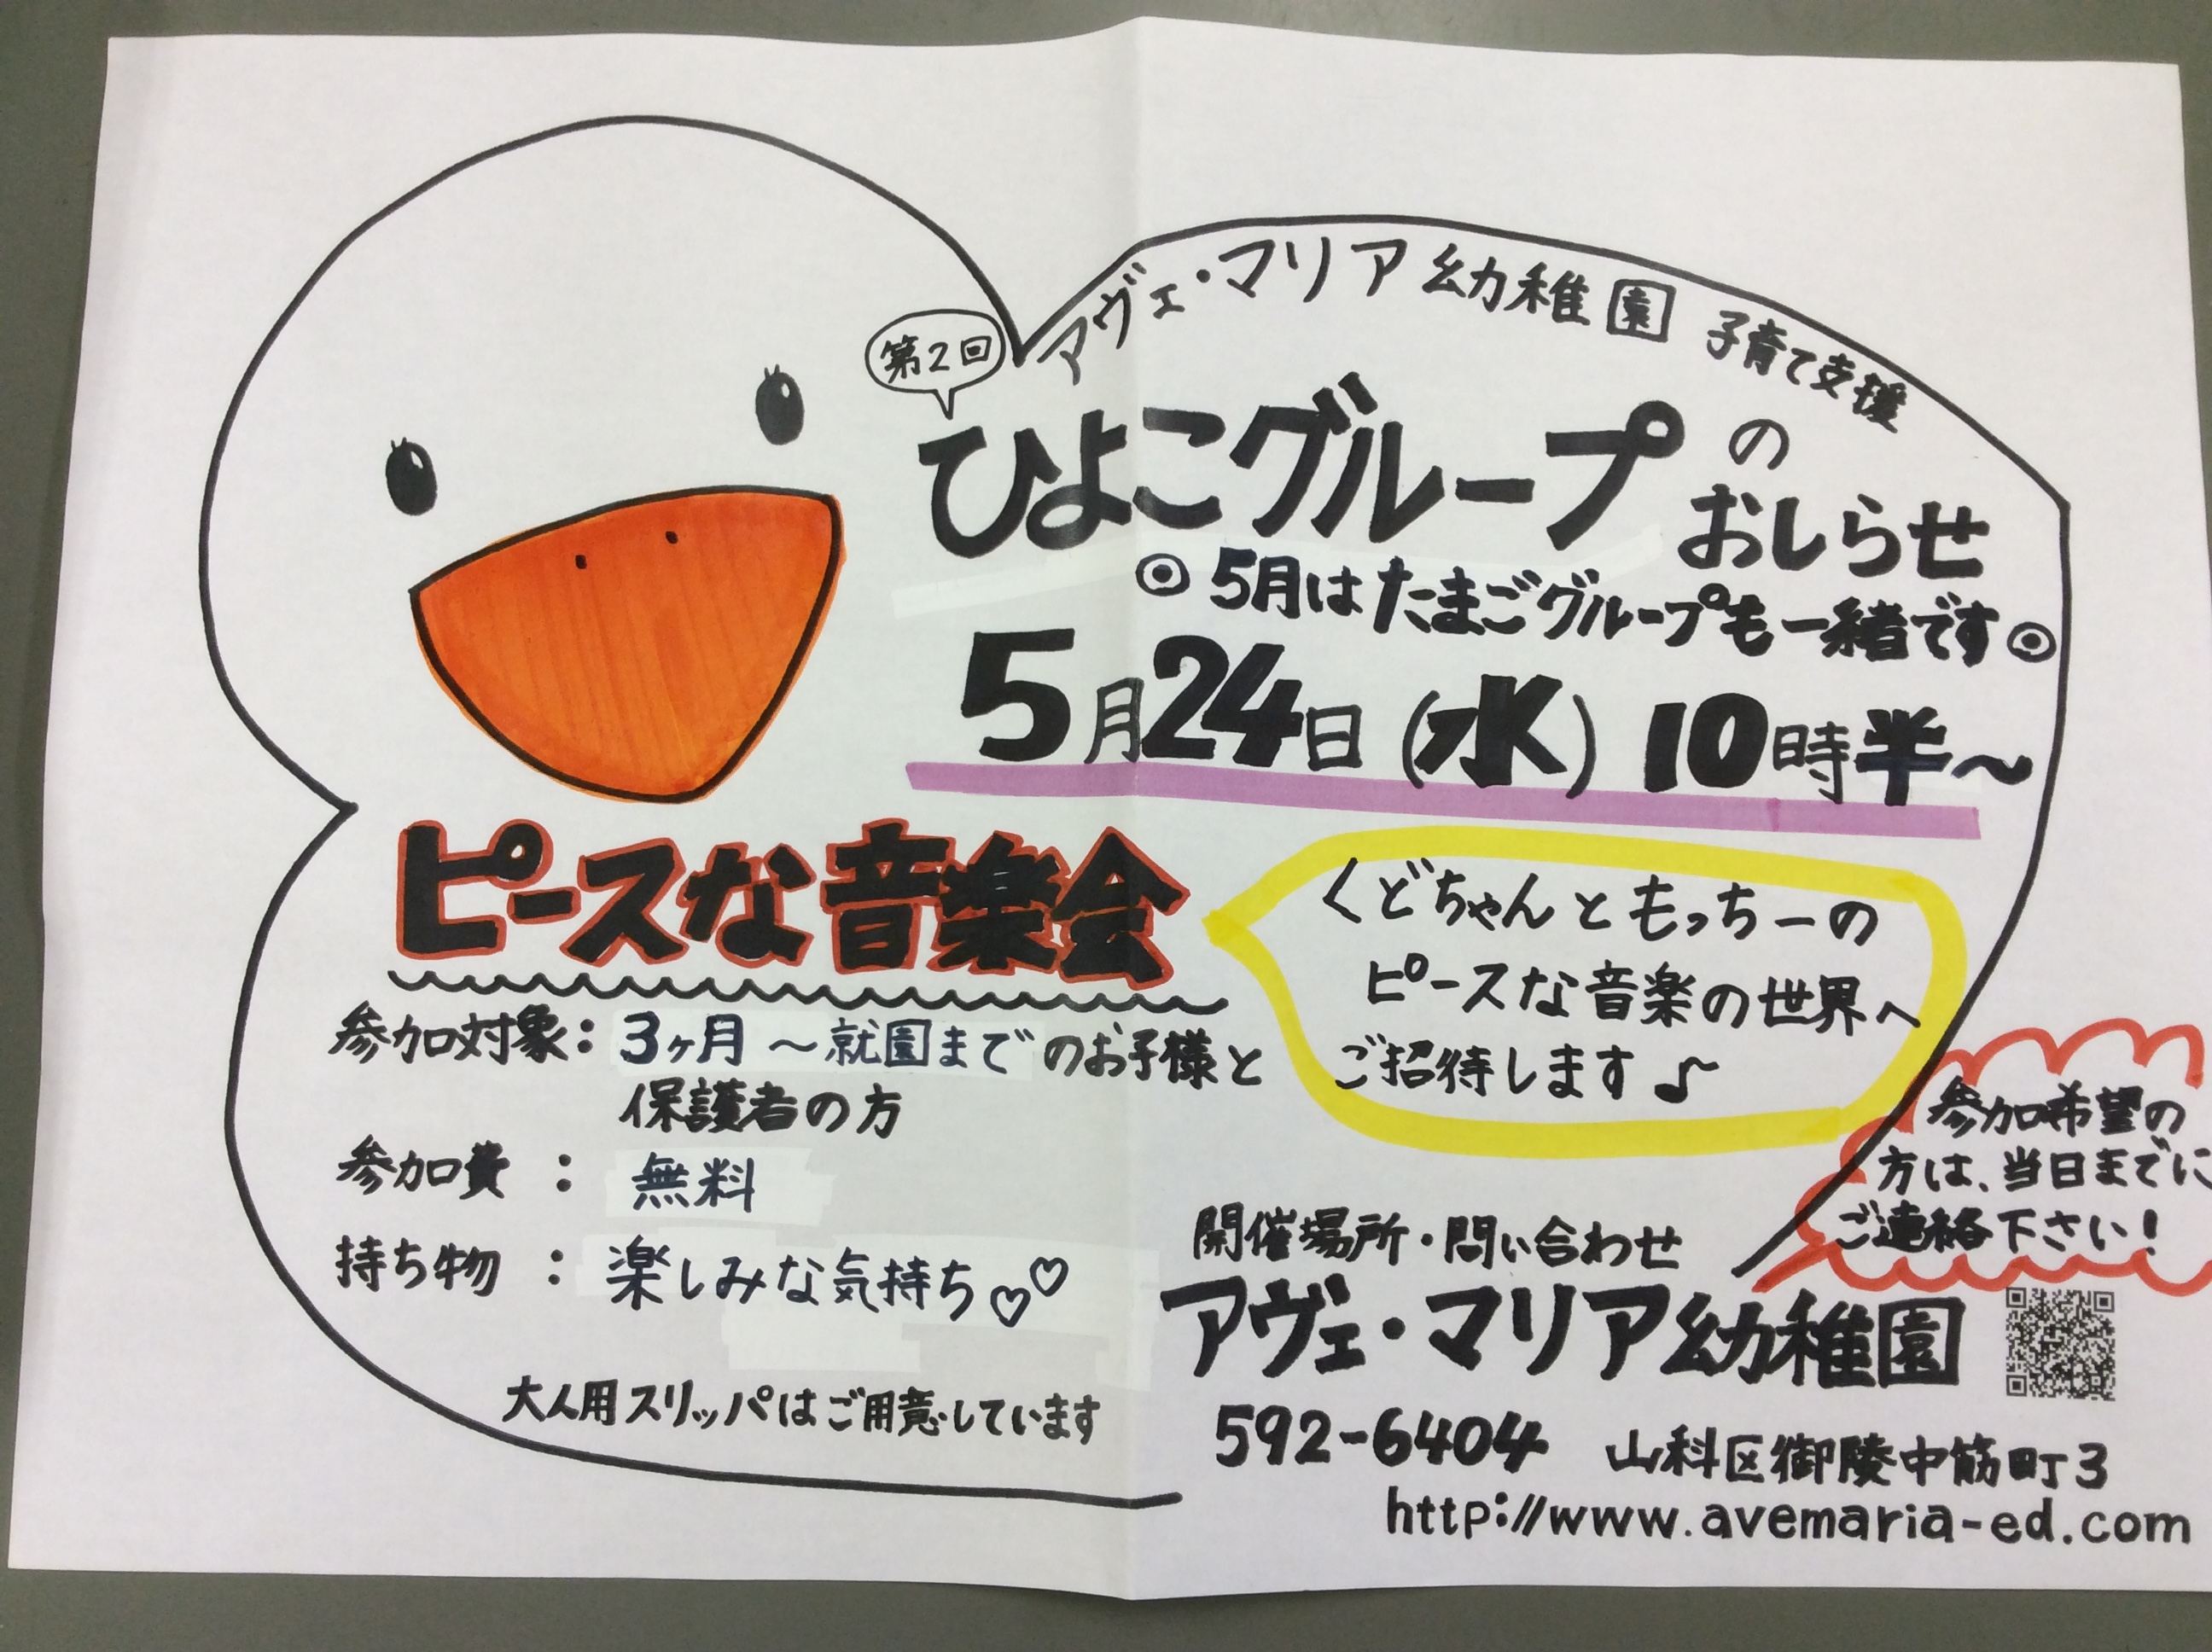 アヴェ・マリア幼稚園 子育て支援
第2回
ひよこグループの
おしらせ
◎5月はたまごグループも一緒です◎
5月24日(水)10時半~
ピースな音楽会
くどちゃんともっちーの
ピースな音楽の世界へ
ご招待します♪
参加対象:3ヶ月~就園までのお子様と
保護者の方
参加費:無料
持ち物:楽しみな気持ち♡♡
大人用スリッパはご用意しています
参加希望の
方は、当日までに
ご連絡下さい!
開催場所・問い合わせ
アヴェ・マリア幼稚園
592-6404 山科区御陵中筋町3
http://www.avemaria-ed.com